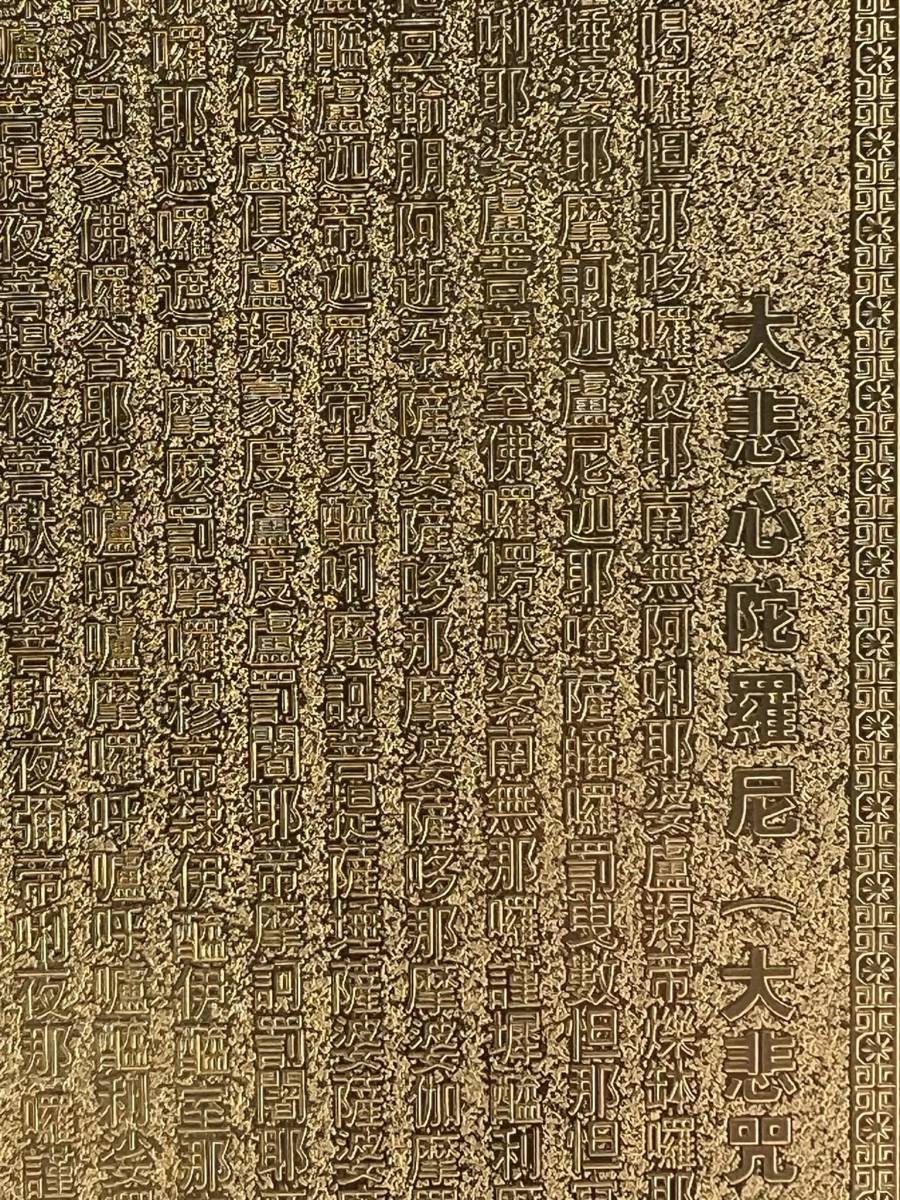 大悲心陀羅尼（大悲咒
喝囉怛那哆囉夜耶南無阿唎耶婆盧羯帝爍缽囉耶
埵婆耶摩訶迦盧尼迦耶唵薩皤囉罰曳數怛那怛
唎耶婆盧吉帝室佛囉愣馱婆南無那囉謹墀醯利
豆輸朋阿逝孕薩婆薩哆那摩婆薩哆那摩婆伽摩
醯盧迦帝迦羅帝夷醯唎摩訶菩提薩埵薩婆薩婆
孕俱盧俱盧羯蒙度盧度盧罰闍耶帝摩訶罰闍耶
囉耶遮囉遮囉摩麼罰摩囉穆帝隸伊醯伊醯室那
沙罰參佛囉舍耶呼嚧呼嚧摩囉呼嚧呼嚧醯利娑
嚧菩提夜菩提夜菩馱夜菩馱夜彌帝唎夜那囉謹